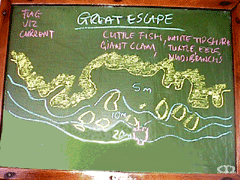 GREAT ESCAPE
FLAG
VIZ
CURRENT
CUTTLE FISH, WHITE TIP SHARK
GIANT CLAM
TURTLE, EELS,
NUDIBRANCHS
5m
10m
20m